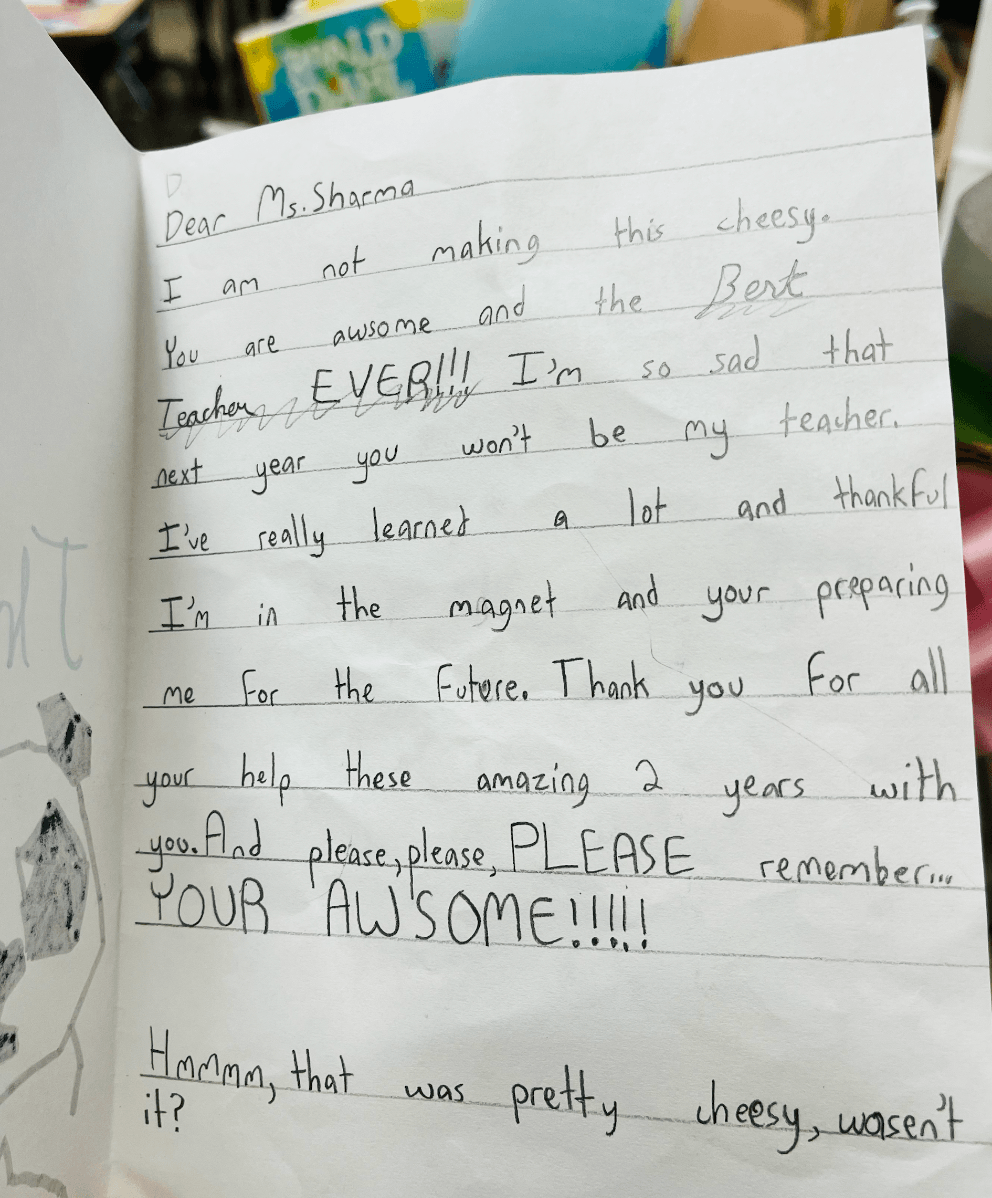 ROALD
DAHL
D
Dear Ms. Sharma
I am not making this cheesy.
You are awsome and the Best
Teacher EVER!!! I'm so sad that
next year you won't be my teacher.
I've really learned a lot and thankful
I'm in the magnet and your preparing
me for the future. Thank you for all
your help these amazing 2 years with
you. And please, please, PLEASE remember...
YOUR AWSOME!!!!!
Hmmmm, that was pretty cheesy, wasen't
it?